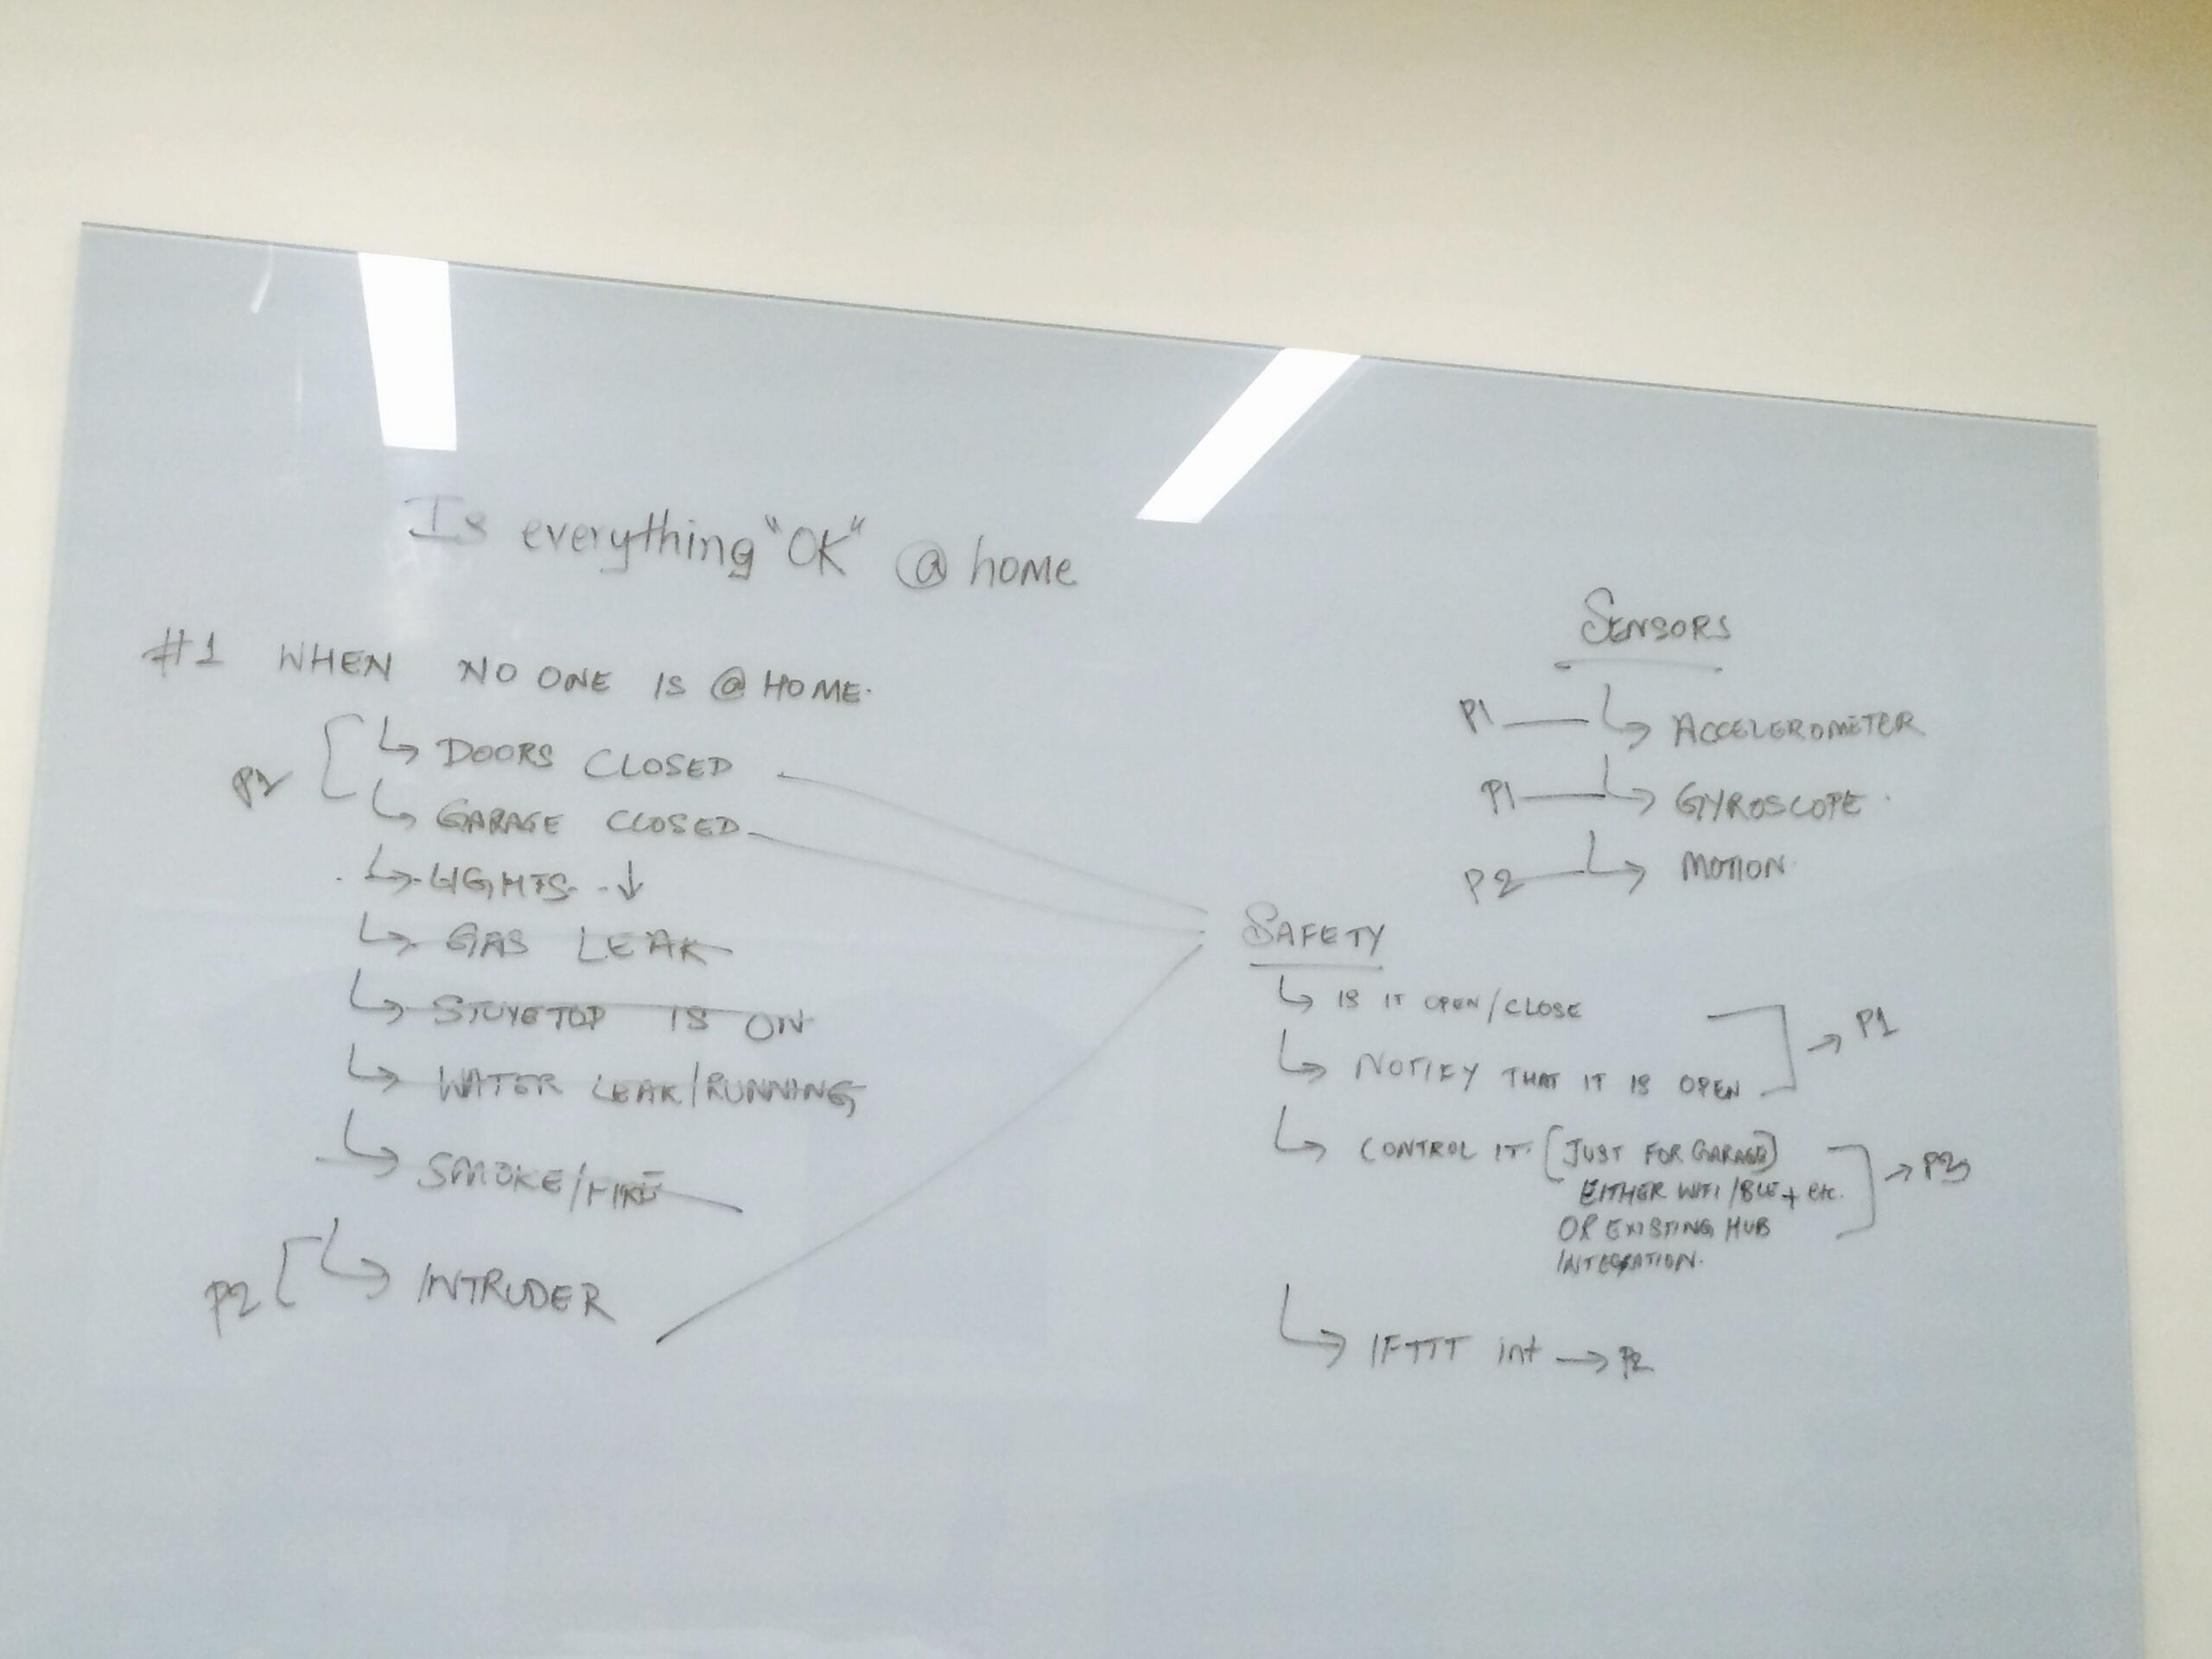 Is everything "OK" @ home
#1 WHEN NO ONE IS @ HOME.
P1
DOORS CLOSED
GARAGE CLOSED
LIGHTS ↓
GAS LEAK
STOVETOP IS ON
WATER LEAK/RUNNING
SMOKE/FIRE
P2 INTRUDER
SENSORS
P1 ACCELEROMETER
P1 GYROSCOPE.
P2 MOTION
SAFETY
IS IT OPEN/CLOSE
NOTIFY THAT IT IS OPEN
→ P1
CONTROL IT. (JUST FOR GARAGE)
EITHER WIFI/BLE + etc.
OR EXISTING HUB
INTEGRATION.
IFTTT int → P2